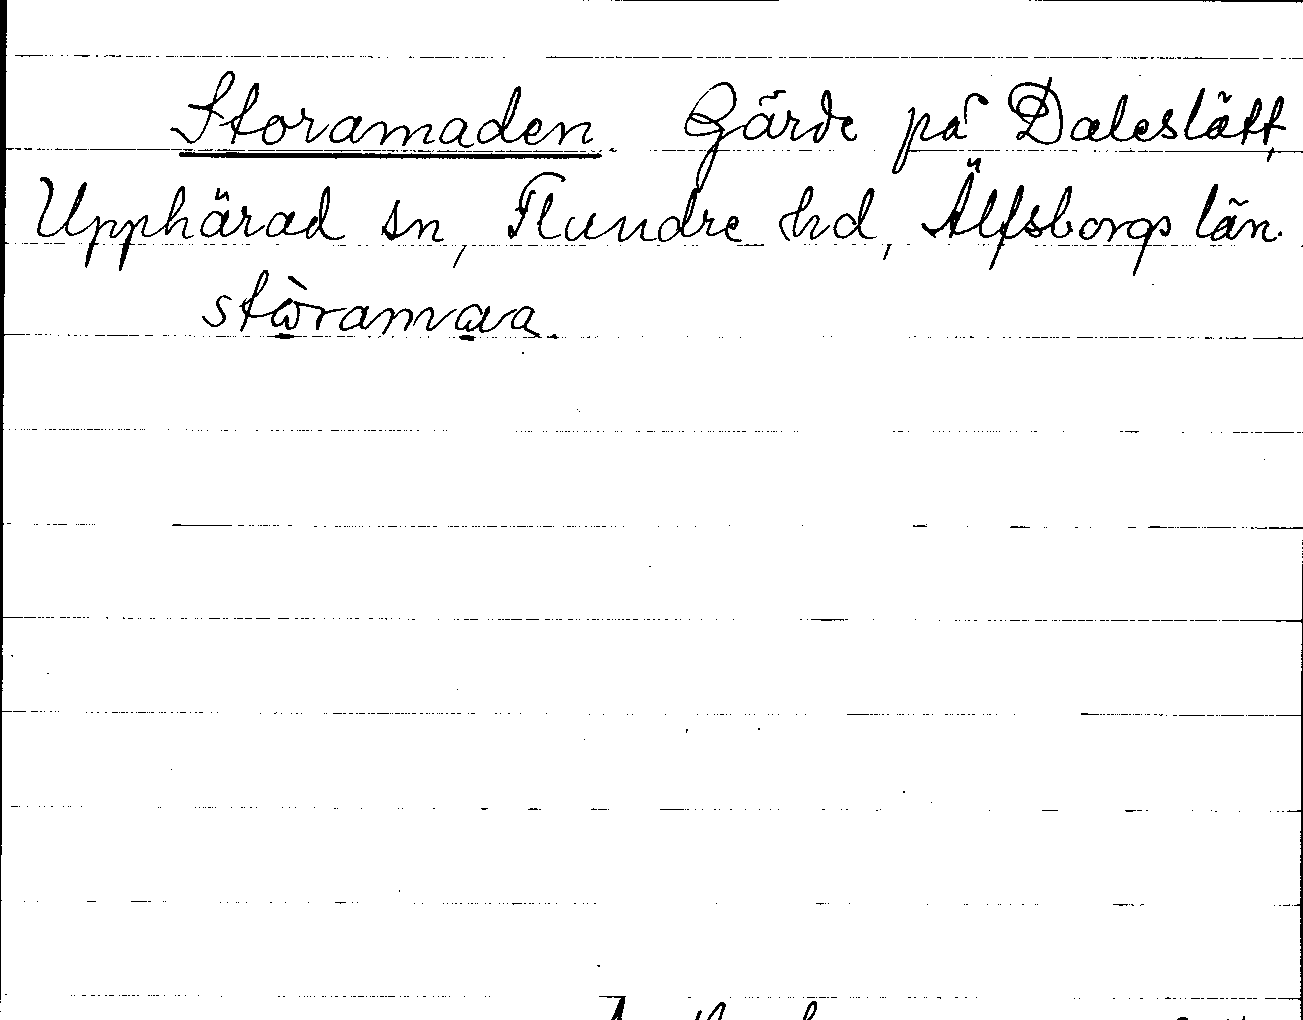 Storamaden. Gärde på Daleslätt,
Upphärad sn, Flundre hd, Älfsborgs län.
stòramaa.